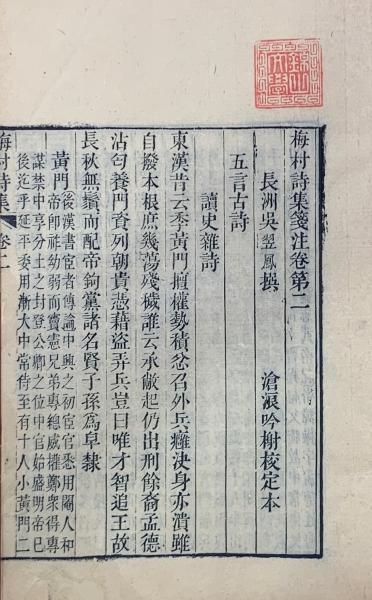 梅村詩集箋注卷第二
長洲吳翌鳳撰 滄浪吟榭校定本
五言古詩
讀史雜詩
東漢昔云季黃門擅權勢積忿召外兵癰決身亦潰雖
自撥本根庶幾蕩殘穢誰云承敝起仍出刑餘裔孟德
沾匄養門資列朝貴憑藉盜弄兵豈曰唯才智追王故
長秋無鬚而配帝鉤黨諸名賢子孫爲皁隸
黃門後漢書宦者傳論中興之初宦官悉用閹人和
帝卽祚幼弱而竇憲兄弟專總威權鄭眾得專
謀禁中享分土之封登公卿之位中官始盛明帝已
後迄乎延平委用漸大中常侍至有十人小黃門二
梅村詩集 卷二